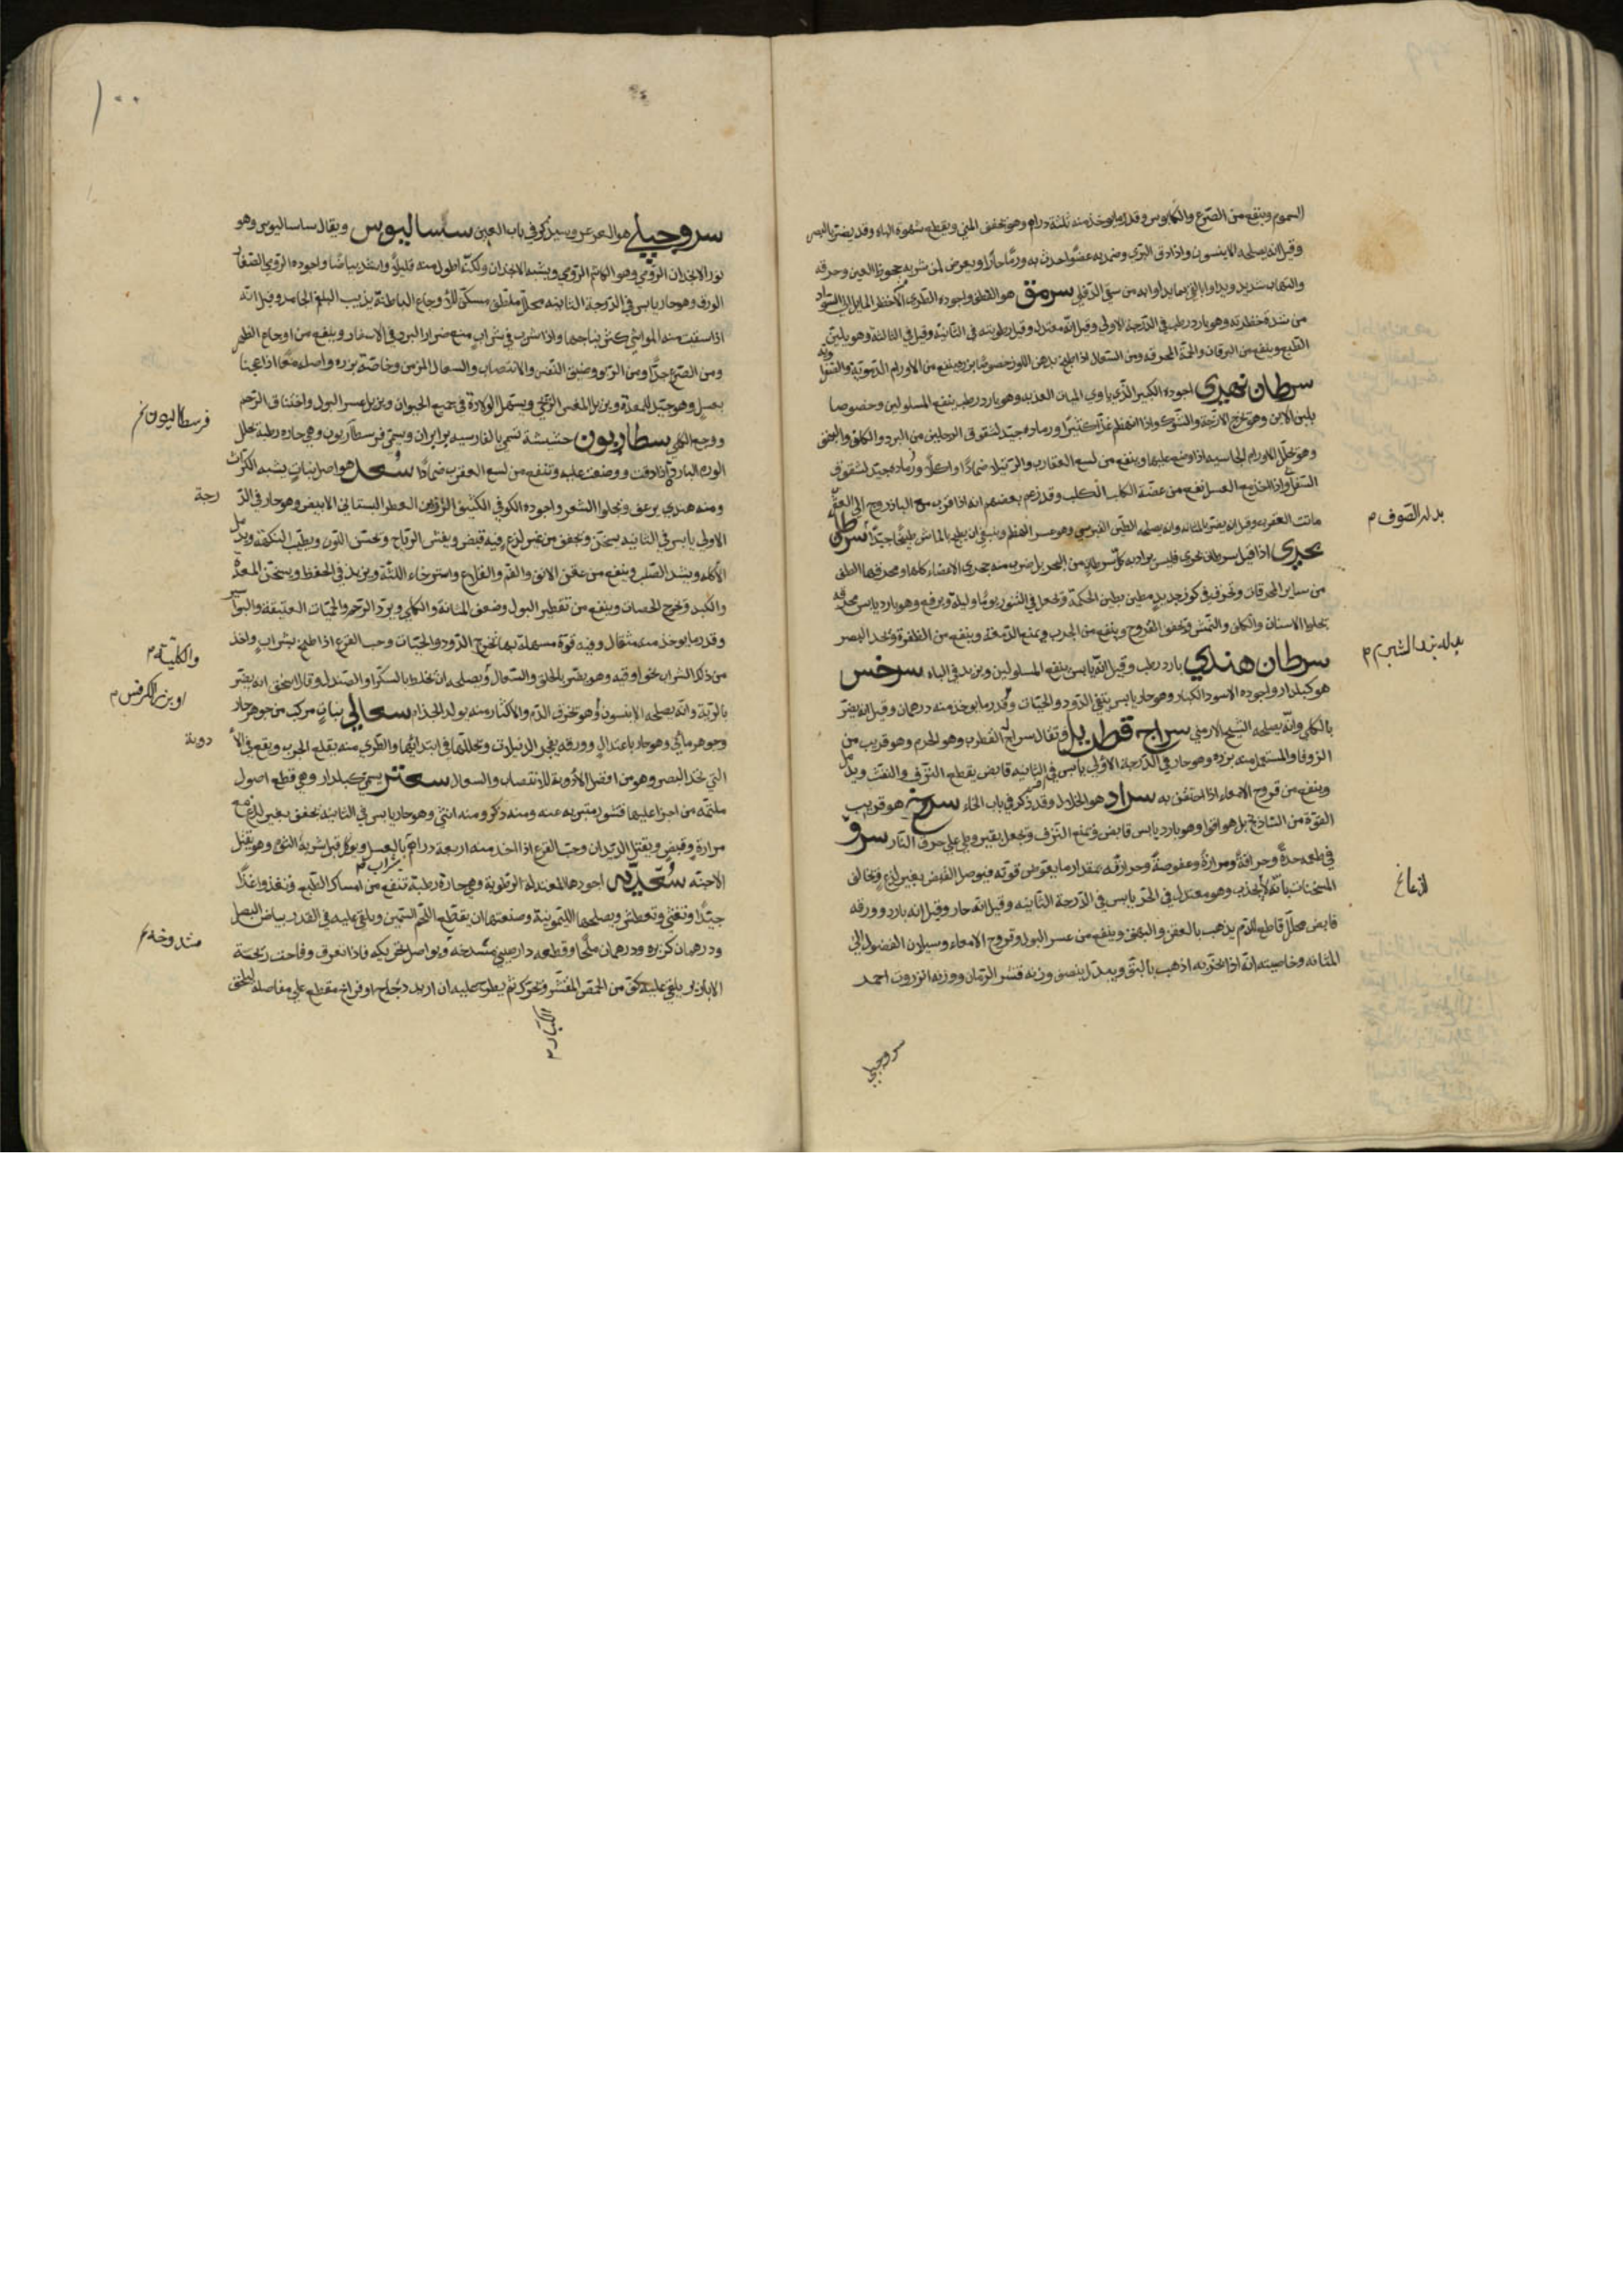 السموم وينفع من الصرع والكابوس وقدر ما يوخذ منه ثلثة دراهم وهو يجفف المني ويقطع شهوة الباه وقد يضر بالبصر
وقيل انه يصلحه الانيسون واذا دق البري وضمد به عضو احدث به ورما حارا ويعرض لمن شربه جحوظ العين وحرقه
والتهاب شديد ويداوا بالقي بما يداوا به من سقي الدفلي سرمق هو القطف واجوده الطري الاخضر المايل الي السواد
من شدة خضرته وهو بارد رطب في الدرجة الاولي وقيل انه معتدل وقيل رطوبته في الثانية وقيل في الثالثة وهو يلين
الطبع وينفع من اليرقان والحمة المحرقه ومن السعال اذا طبخ بدهن اللوز خصوصا بزره ينفع من الاورام الدموية
سرطان نهري اجوده الكبير الذي ياوي المياه العذبه وهو بارد رطب ينفع المسلولين وخصوصا
بلبن الاتن وهو يخرج الازجة والشوك واذا انهضم غذا كثيرا ورماده جيد لشقوق الرجلين من البرد والكلف والبهق
وهو يحلل الاورام الجاسيه اذا وضع عليها وينفع من لسع العقارب والرتيلا ضمادا واكلا ورماده جيد لشقوق
الثدي واذا اخذ مع العسل نفع من عضة الكلب الكلب وقد زعم بعضهم انه اذا قرب مع الباذروج الي العقرب
ماتت العقرب وقيل انه يضر بالمثانه وانه يصلحه الطين القبرسي وهو عسر الهضم وينبغي ان يطبخ بالماش طبخا جيدا سرطان
بحري اذا قيل سرطان بحري فليس يراد به كل سرطان من البحر بل ضرب منه حجري الاعضاء كلها ومحرقها الطف
من ساير المحرقات ويحرق في كوز جديد مطين بطين الحكمة ويجعل في التنور يوما وليلة ويرفع وهو بارد يابس محرقه
يجلوا الاسنان والكلف والنمش ويجفف القروح وينفع من الجرب ويمنع الدمعة وينفع من الظفرة ويحد البصر
سرطان هندي بارد رطب وقيل انه يابس ينفع المسلولين ويزيد في الباه سرخس
هو كيلدار واجوده الاسود الكبار وهو حار يابس ينقي الدود والحيات وقدر ما يوخذ منه درهمان وقيل انه يضر
بالكلي وانه يصلحه الشيح الارمني سراج قطربل ويقال سراج القطرب وهو الخرم وهو قريب من
الزوفا والمستعمل منه بزره وهو حار في الدرجة الاولي يابس في الثانيه قابض يقطع النزف والنفث ويدمل
وينفع من قروح الامعاء اذا احتقن به سراد هو الخلال وقد ذكر في باب الخاء سرنج هو قريب
القوة من الشاذنج بل هو اقوا وهو بارد يابس قابض ويمنع النزف ويجعل بقيروطي علي حرق النار سرو
في طعمه حدة وحرافة ومرارة وعفوصة وحرارته بمقدار ما يغوص قوته فيوصل القبض بغير لذع ويخالف
المسخنات بانه لا يجذب وهو معتدل في الحر يابس في الدرجة الثانيه وقيل انه حار وقيل انه بارد وورقه
قابض محلل قاطع للدم يذهب بالعفن والبهق وينفع من عسر البول وقروح الامعاء وسيلان الفضول الي
المثانه وخاصيته انه اذا بخر به اذهب بالبق وبدله نصف وزنه قشر الرمان ووزنه انزروت احمر
سروجبلي
بدله الصوف م
بدله بزر الشبرم م
لذاع
١٠٠
سروجبلي هو العرعر وسيذكر في باب العين سساليوس ويقال ساساليوس وهو
بزر الانجدان الرومي وهو الكاشم الرومي ويشبه الانجدان ولكنه اطول منه قليلا واشد بياضا واجوده الرومي الصغار
الورق وهو حار يابس في الدرجة الثانيه محلل ملطف مسكن للاوجاع الباطنة يذيب البلغم الجامد وقيل انه
اذا سقيت منه المواشي كثر نتاجها واذا شرب في شراب منع ضرار البرد في الاسفار وينفع من اوجاع الظهر
ومن الصرع جدا ومن الربو وضيق النفس والانتصاب والسعال المزمن وخاصة بزره واصله معا اذا عجنا
بعسل وهو جيد للمعدة ويزيل المغس الريحي ويسهل الولادة في جميع الحيوان ويزيل عسر البول واختناق الرحم
ووجع الكلي سطاريون حشيشة تسمي بالفارسيه برايران ويسمي فرسطاريون وهي حاره رطبة تحلل
الورم البارد اذا دقت ووضعت عليه وتنفع من لسع العقرب ضمادا سعد هو اصل نبات يشبه الكراث
ومنه هندي يرعف ويجلوا الشعر واجوده الكوفي الكثيف الوزين العطر البستاني الابيض وهو حار في الد
الاولي يابس في الثانيه يسخن ويجفف من غير لذع وفيه قبض ويفش الرياح ويحسن اللون ويطيب النكهة ويدمل
الاكله ويشد الصلب وينفع من عفن الانف والفم والقلاع واسترخاء اللثة ويزيد في الحفظ ويسخن المعدة
والكبد ويخرج الحصاة وينفع من تقطير البول وضعف المثانة والكلي وبرد الرحم والحميات العتيقة والبواسير
وقدر ما يوخذ منه مثقال وفيه قوة مسهلة بها تخرج الدود والحيات وحب القرع اذا طبخ بشراب واخذ
من ذلك الشراب نحو اوقيه وهو يضر بالحلق والسعال ويصلحه ان يخلط بالسكر او الصندل وقال اسحق انه يضر
بالرية وانه يصلحه الانيسون وهو يحرق الدم والاكثار منه يولد الجذام سعالي نبات مركب من جوهر حار
وجوهر مائي وهو حار باعتدال وورقه يفجر الدبيلات وتحللها في ابتدائها والطري منه يقلع الجرب ويقع في الا
التي تحد البصر وهو من افضل الادويه للانتصاب والسعال سعتر يسمي كيلدار وهي قطع اصول
ملتمه من اجزا عليها قشور متبريه عنه ومنه ذكر ومنه انثي وهو حار يابس في الثانية يجفف بغير لذع مع
مرارة وقبض ويقتل الديدان وحب القرع اذا اخذ منه اربعة دراهم بالعسل ويوكل قبل شربه الثوم وهو يقتل
الاجنه سعديه اجودها المعتدلة الرطوبة وهي حارة رطبة تنفع من امساك الطبع وتغذو اغذا
جيدا وتغثي وتعطش ويصلحها الليمونية وصنعتها ان يقطع اللحم السمين ويلقي عليه في القدر بياض البصل
ودرهمان كزبره ودرهمان ملحا وقطعه دارصيني مشدخة ويواصل تحريكه فاذا تعرق وفاحت ريحة
الابازير يلقي عليه كف من الحمص المقشر ويحرك ثم يطرح عليه ان اريد دجاج او فراخ مقطع علي مفاصله
فرسطاليون نخ
رجة
والكلية م
او بزر الكرفس م
دوية
شراب م
مشدوخة م
الكبار م